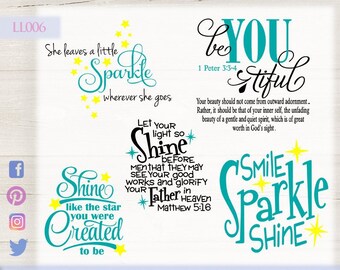 LL006
She leaves a little
Sparkle
wherever she goes
be YOU
1 Peter 3:3-4
tiful
Your beauty should not come from outward adornment ..
Rather, it should be that of your inner self, the unfading
beauty of a gentle and quiet spirit, which is of great
worth in God's sight .
LET YOUR
light so
Shine
BEFORE
MEN THAT THEY MAY
SEE YOUR GOOD
WORKS AND GLORIFY
YOUR Father IN
HEAVEN
MATTHEW 5:16
Shine
like the star
you were
Created
to be
SMILE
Sparkle
SHINE